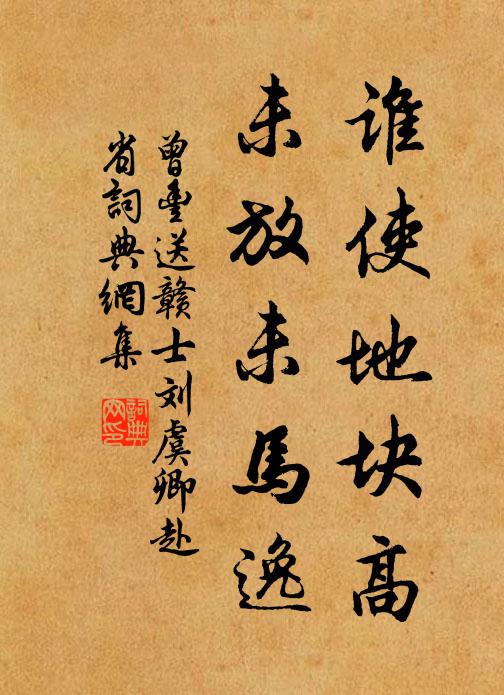 谁使地块高
未放未馬逸
曾豐送贛士刘虞卿赴
省詞典網集
詞典
网印